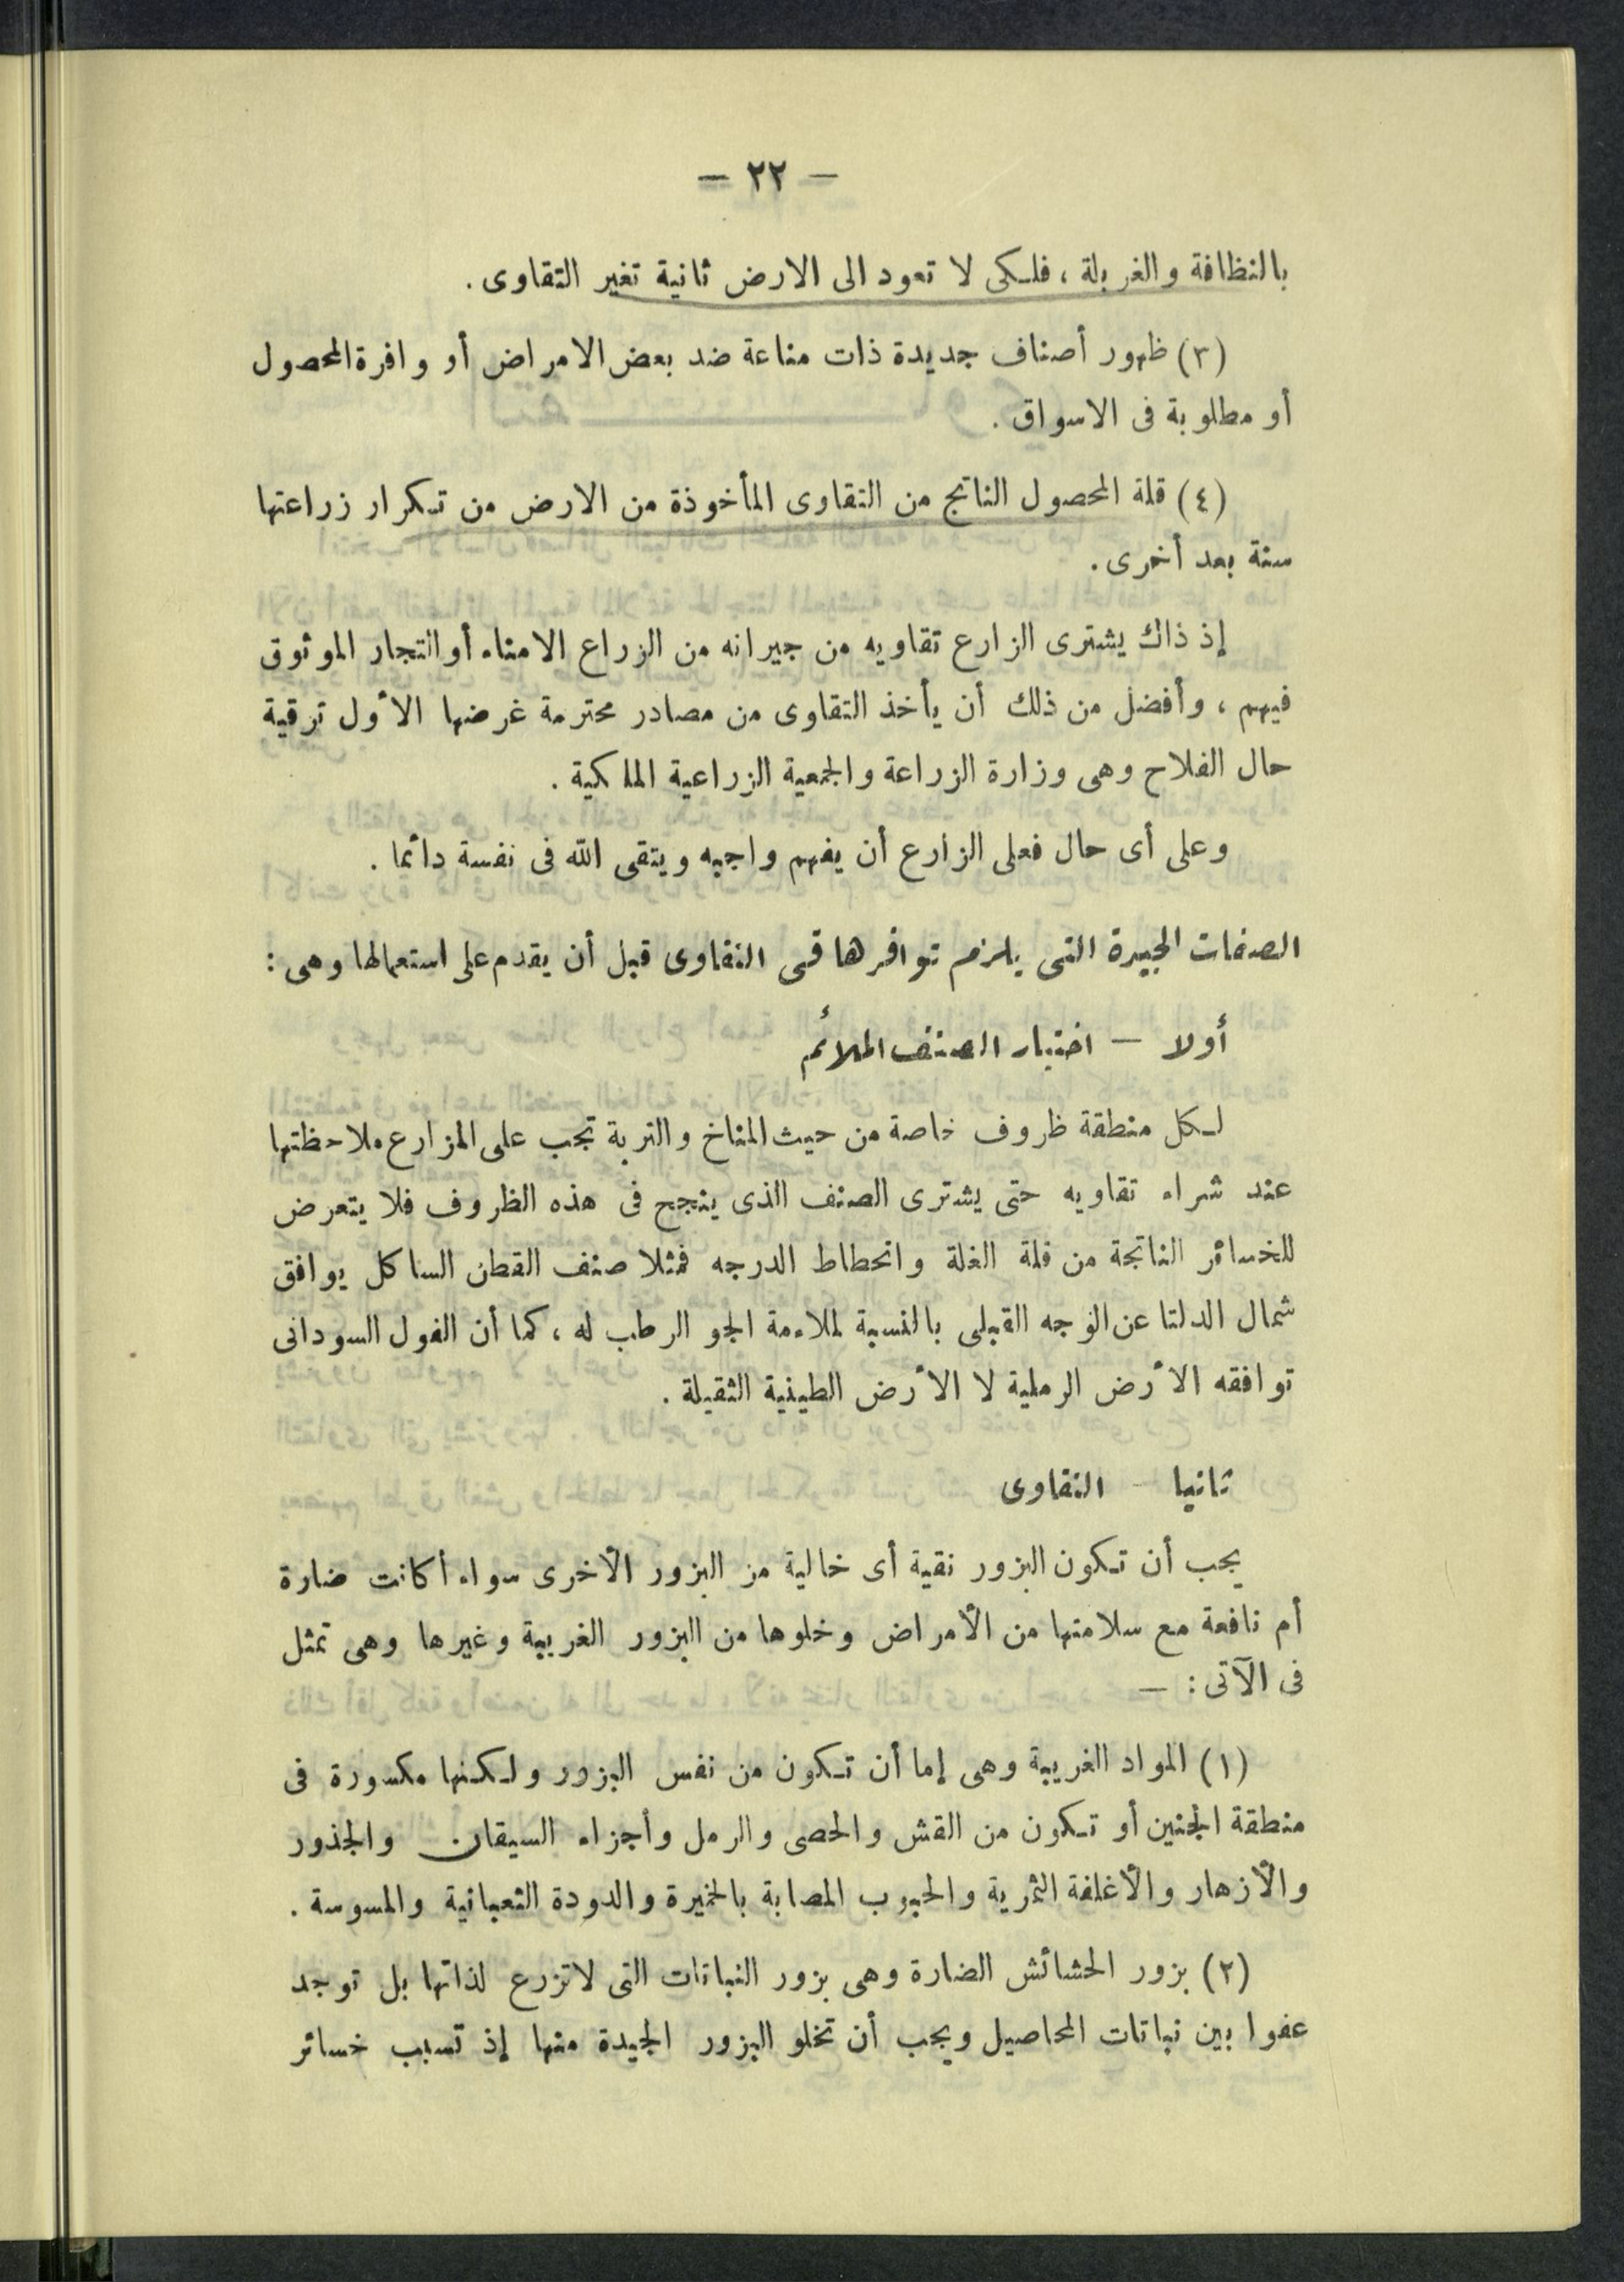 — ٢٢ —
بالنظافة والغربلة ، فلكى لا تعود الى الارض ثانية تغير التقاوى .
(٣) ظهور أصناف جديدة ذات مناعة ضد بعض الامراض أو وافرة المحصول
أو مطلوبة فى الاسواق .
(٤) قلة المحصول الناتج من التقاوى المأخوذة من الارض من تكرار زراعتها
سنة بعد أخرى .
إذ ذاك يشترى الزارع تقاويه من جيرانه من الزراع الامناء أو التجار الموثوق
فيهم ، وأفضل من ذلك أن يأخذ التقاوى من مصادر محترمة غرضها الأول ترقية
حال الفلاح وهى وزارة الزراعة والجمعية الزراعية الملكية .
وعلى أى حال فعلى الزارع أن يفهم واجبه ويتقى الله فى نفسة دائما .
الصفات الجيدة التى يلزم توافرها فى التقاوى قبل أن يقدم على استعمالها وهى :
أولا — اختيار الصنف الملائم
لكل منطقة ظروف خاصة من حيث المناخ والتربة تجب على المزارع ملاحظتها
عند شراء تقاويه حتى يشترى الصنف الذى ينجح فى هذه الظروف فلا يتعرض
للخسائر الناتجة من قلة الغلة وانحطاط الدرجه فمثلا صنف القطن الساكل يوافق
شمال الدلتا عن الوجه القبلى بالنسبة لملاءمة الجو الرطب له ، كما أن الفول السودانى
توافقه الأرض الرملية لا الأرض الطينية الثقيلة .
ثانيا — التقاوى
يجب أن تكون البزور نقية أى خالية من البزور الأخرى سواء أكانت ضارة
أم نافعة مع سلامتها من الأمراض وخلوها من البزور الغريبة وغيرها وهى تمثل
فى الآتى : —
(١) المواد الغريبة وهى إما أن تكون من نفس البزور ولكنها مكسورة فى
منطقة الجنين أو تكون من القش والحصى والرمل وأجزاء السيقان والجذور
والأزهار والأغلفة الثمرية والحبوب المصابة بالخميرة والدودة الثعبانية والمسوسة .
(٢) بزور الحشائش الضارة وهى بزور النباتات التى لاتزرع لذاتها بل توجد
عفوا بين نباتات المحاصيل ويجب أن تخلو البزور الجيدة منها إذ تسبب خسائر